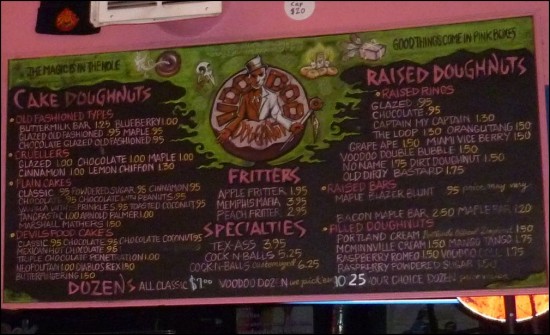 CAP
$20
THE MAGIC IS IN THE HOLE
GOOD THINGS COME IN PINK BOXES
VOODOO
DOUGHNUT
CAKE DOUGHNUTS
• OLD FASHIONED TYPES
BUTTERMILK BAR 1.25 BLUEBERRY 1.00
GLAZED OLD FASHIONED .95 MAPLE .95
CHOCOLATE GLAZED OLD FASHIONED .95
• CRUELLERS
GLAZED 1.00 CHOCOLATE 1.00 MAPLE 1.00
CINNAMON 1.00 LEMON CHIFFON 1.30
• PLAIN CAKES
CLASSIC .95 POWDERED SUGAR .95 CINNAMON .95
CHOCOLATE .95 CHOCOLATE WITH PEANUTS .95
VANILLA WITH SPRINKLES .95 TOASTED COCONUT .95
TANGFASTIC 1.00 ARNOLD PALMER 1.00
MARSHALL MATHERS 1.50
• DEVILS FOOD CAKES
CLASSIC .95 CHOCOLATE .95 CHOCOLATE COCONUT .95
MEXICAN HO CHOCOLATE .95
TRIPLE CHOCOLATE PENETRATION 1.00
NEOPOLITAN 1.00 DIABLOS REX 1.50
BUTTERFINGERING 1.50
FRITTERS
APPLE FRITTER 1.95
MEMPHIS MAFIA 3.95
PEACH FRITTER 2.95
SPECIALTIES
TEX-ASS 3.95
COCK N BALLS 5.25
COCK N BALLS customized 6.25
RAISED DOUGHNUTS
• RAISED RINGS
GLAZED .95
CHOCOLATE .95
CAPTAIN MY CAPTAIN 1.30
THE LOOP 1.30 ORANGUTANG 1.50
GRAPE APE 1.50 MIAMI VICE BERRY 1.50
VOODOO DOUBLE BUBBLE 1.50
NO NAME 1.75 DIRT DOUGHNUT 1.50
OLD DIRTY BASTARD 1.75
• RAISED BARS
MAPLE BLAZER BLUNT .95 price may vary
BACON MAPLE BAR 2.50 MAPLE BAR 1.20
• FILLED DOUGHNUTS
PORTLAND CREAM
MCMINNVILLE CREAM 1.50 MANGO TANGO 1.75
RASPBERRY ROMEO 1.50 VOODOO DOLL 1.75
RASPBERRY POWDERED SUGAR
DOZENS ALL CLASSIC VOODOO DOZEN we pick'em 10.25 YOUR CHOICE DOZEN